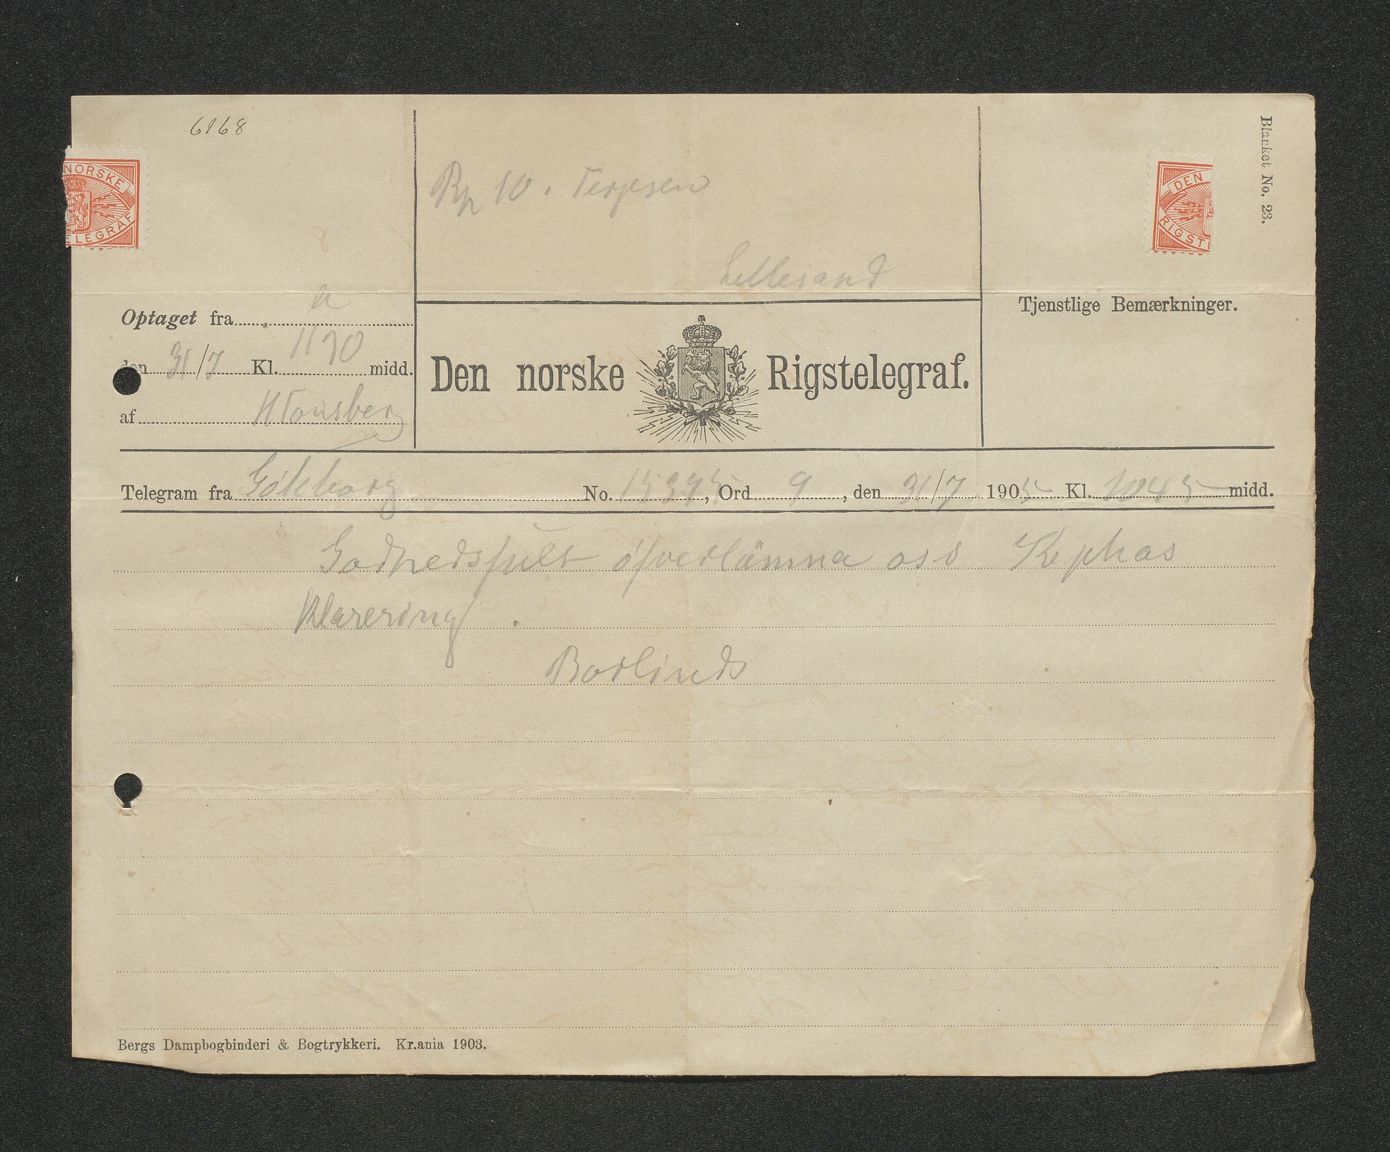 6168
Blanket No. 23.
NORSKE
TELEGRAF
DEN
RIGST
Rp 10. Terjesen
Lillesand
Optaget fra
Tjenstlige Bemærkninger.
den 31/7 Kl. 1130 midd.
Den norske Rigstelegraf.
af HTønsberg
Telegram fra Göteborg No. 15395, Ord 9, den 31/7 1905 Kl. 1045 midd.
Godhedsfult öfverlämna oss Kephas
Klarering.
Borlinds
Bergs Dampbogbinderi & Bogtrykkeri. Kr.ania 1903.